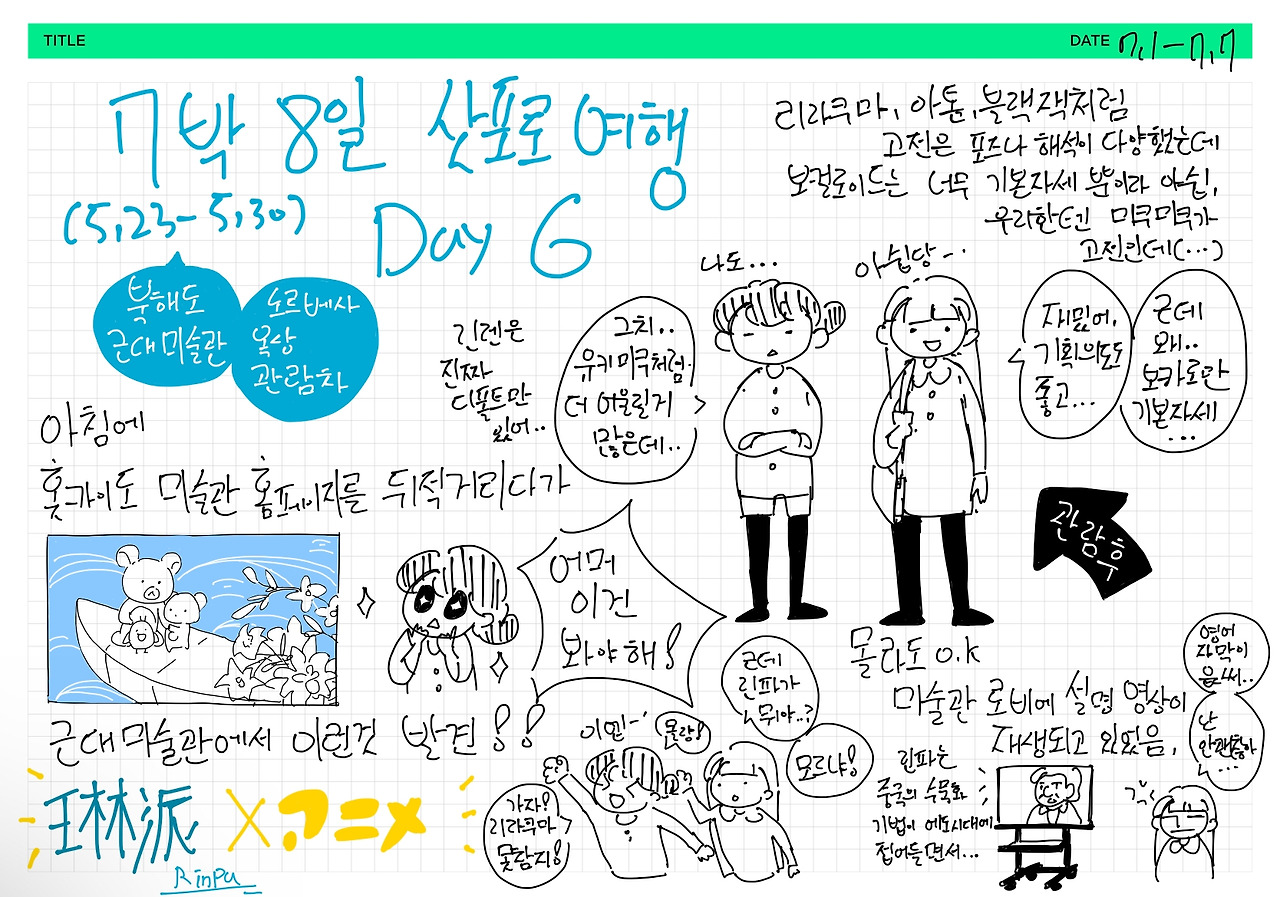 TITLE
DATE 7.1 - 7.7
7박 8일 삿포로 여행
(5.23 - 5.30)
Day 6
북해도
근대미술관
노르베사
옥상
관람차
리라쿠마, 아톰, 블랙잭처럼
고전은 포즈나 해석이 다양했는데
보컬로이드는 너무 기본자세 뿐이라 아쉽,
우리한텐 미쿠미쿠가
고전인데(...)
나도...
아쉽당~..
린렌은
진짜
디폴트만
있어..
그치..
유키미쿠처럼
더 어울릴게
많은데..
재밌어,
기획의도도
좋고...
근데
왜..
보카로만
기본자세
...
관람후
아침에
홋카이도 미술관 홈페이지를 뒤적거리다가
어머
이건
봐야해!
근대미술관에서 이런것 발견!!
琳派 X アニメ
Rinpa
가자!
리라쿠마
못참지!
몰랑!
근데
린파가
뭐야..?
모르냐!
몰라도 O.K
미술관 로비에 설명 영상이
재생되고 있었음,
린파는
중국의 수묵화
기법이 에도시대에
접어들면서...
영어
자막이
읎써..
난
안괜찮아
...